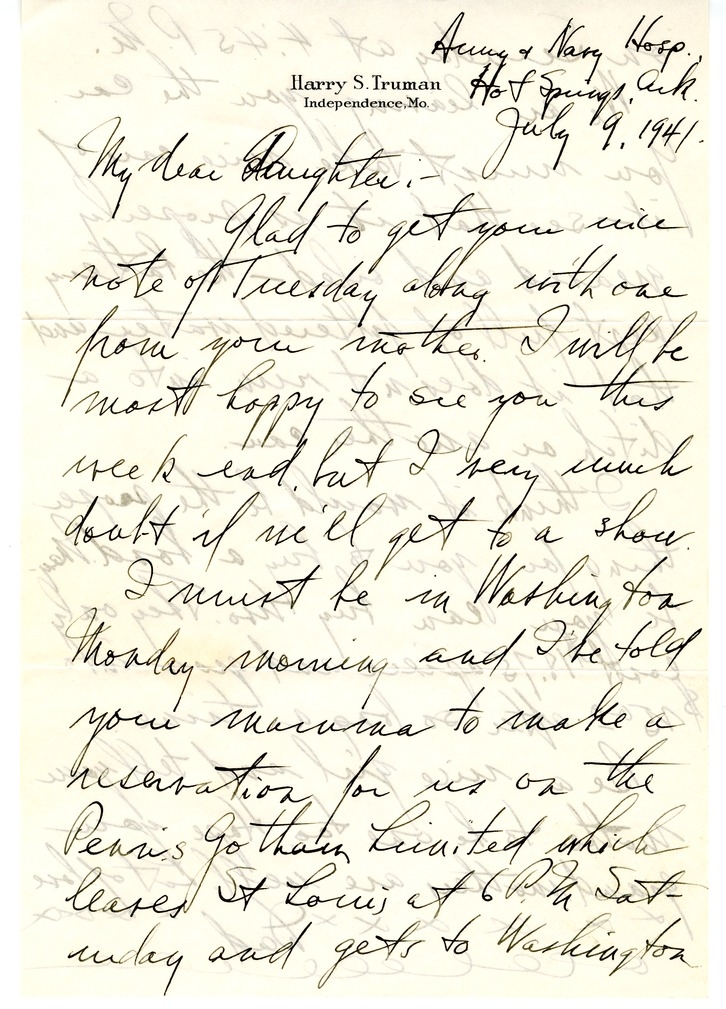 Army & Navy Hosp.,
Harry S. Truman
Independence, Mo.
Hot Springs, Ark.
July 9, 1941.
My dear Daughter:-
Glad to get your nice
note of Tuesday along with one
from your mother. I will be
most happy to see you this
week end, but I very much
doubt if we'll get to a show.
I must be in Washington
Monday morning and I've told
your mamma to make a
reservation for us on the
Penn's Gotham Limited which
leaves St Louis at 6 P.M Sat-
urday and gets to Washington